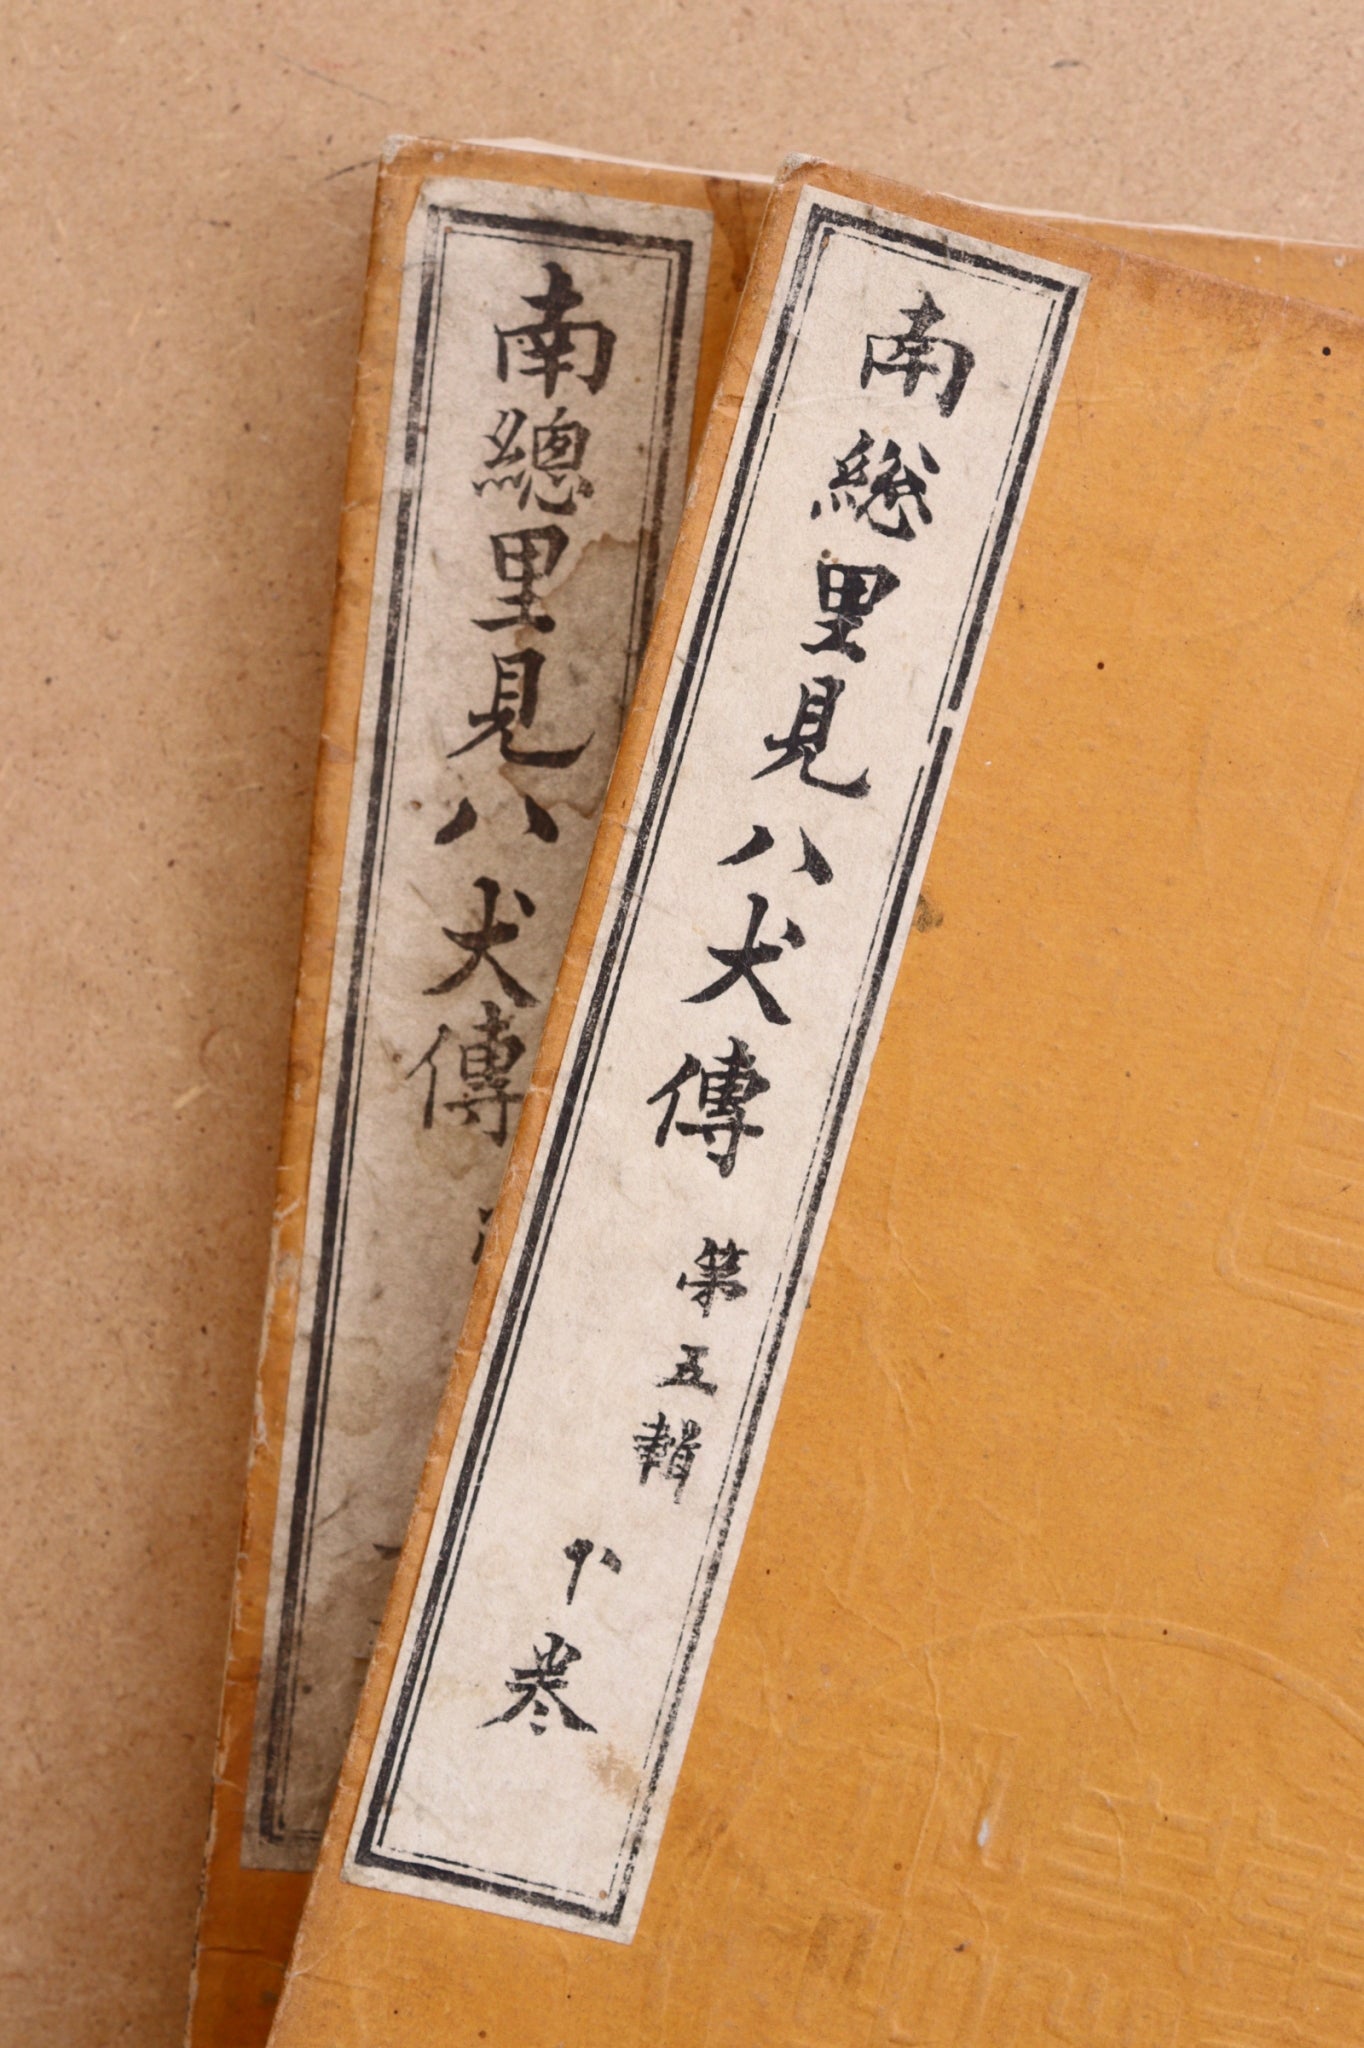 南総里見八犬傳 第五輯 下巻
南總里見八犬傳